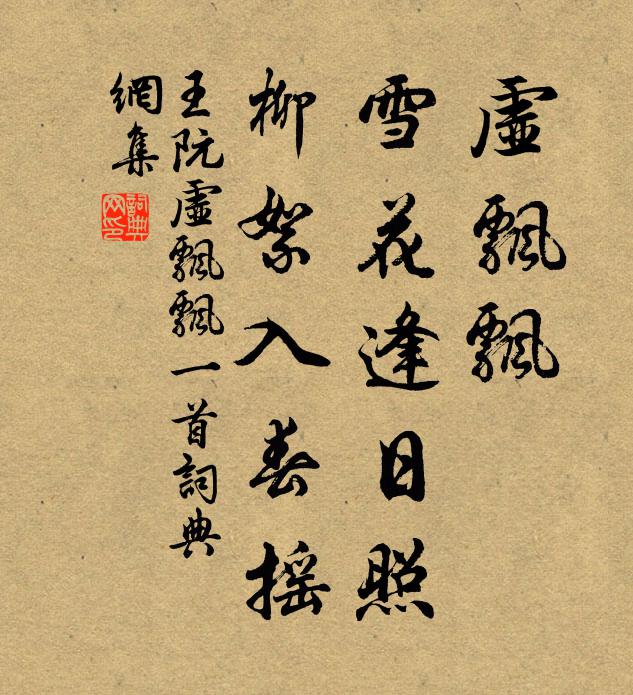 虛飄飄
雪花逢日照
柳絮入春搖
王阮虛飄飄一首詞典
網集
詞典
网印